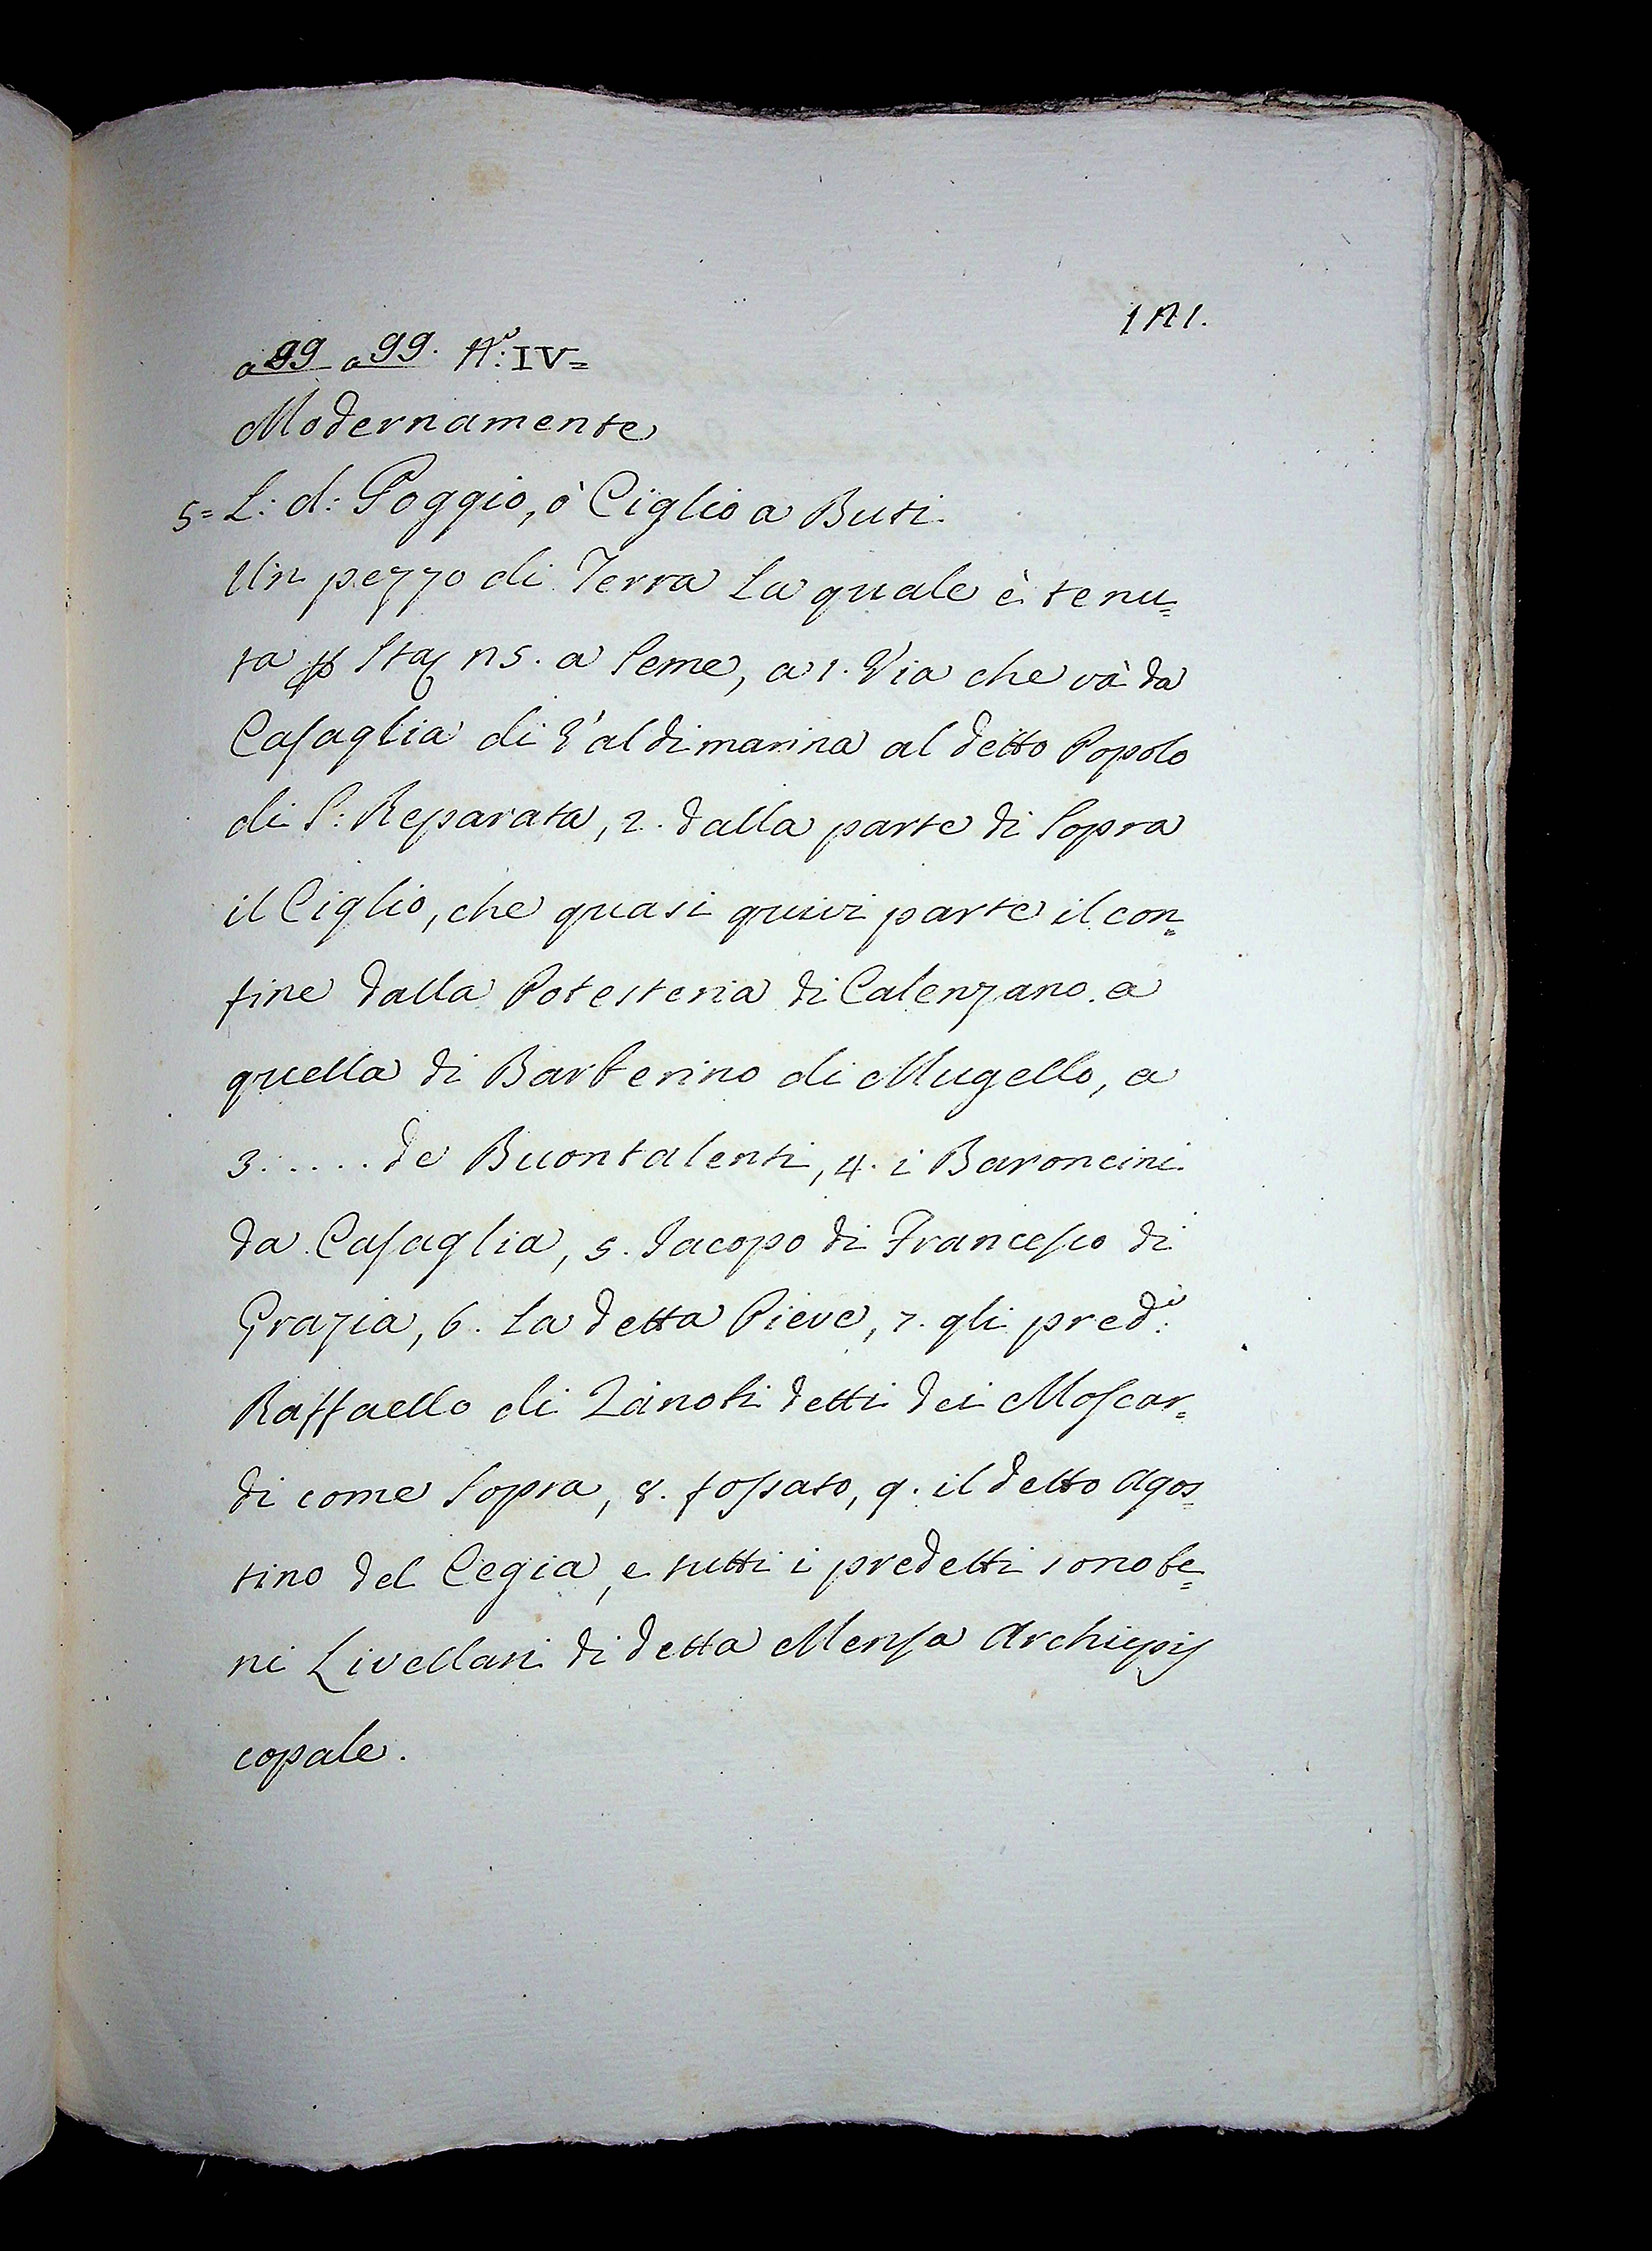 171.
a 99 a 99. N.º: IV=
Modernamente
5= L: d: Poggio, ò Ciglio a Buti.
Un pezzo di Terra La quale è tenu=
ta p Staj 25. a Seme, a 1. Via che và da
Casaglia di Valdimarina al detto Popolo
di S: Reparata, 2. dalla parte di Sopra
il Ciglio, che quasi quivi parte il con=
fine dalla Potesteria di Calenzano. a
quella di Barberino di Mugello, a
3 . . . . . de Buontalenti, 4. i Baroncini
da Casaglia, 5. Jacopo di Francesco di
Grazia, 6. La detta Pieve, 7. gli pred:i
Raffaello di Zanobi detti dei Moscar=
di come Sopra, 8. fossato, 9. il detto Agos=
tino del Cegia, e tutti i predetti sono be=
ni Livellari di detta Mensa Archiepis
copale.